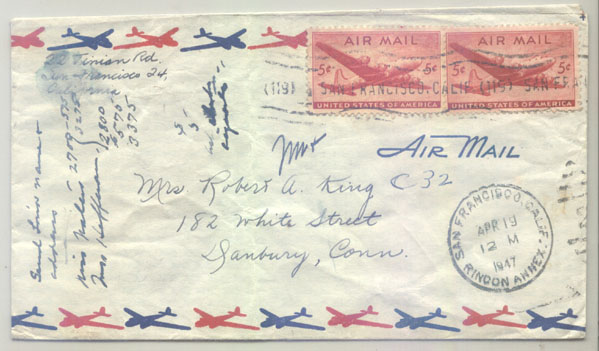 22 Tinian Rd.
San Francisco 24,
California
AIR MAIL
5¢ 5¢
UNITED STATES OF AMERICA
AIR MAIL
5¢ 5¢
UNITED STATES OF AMERICA
(119) SAN FRANCISCO, CALIF. (119) SAN FRAN
AIR MAIL
Mrs. Robert A. King C32
182 White Street
Danbury, Conn.
SAN FRANCISCO, CALIF.
APR 19
12 M
1947
RINCON ANNEX.
Send Siro name &
address
Miss 2700-575
3275
Mrs Heffernan 2800
575
3375